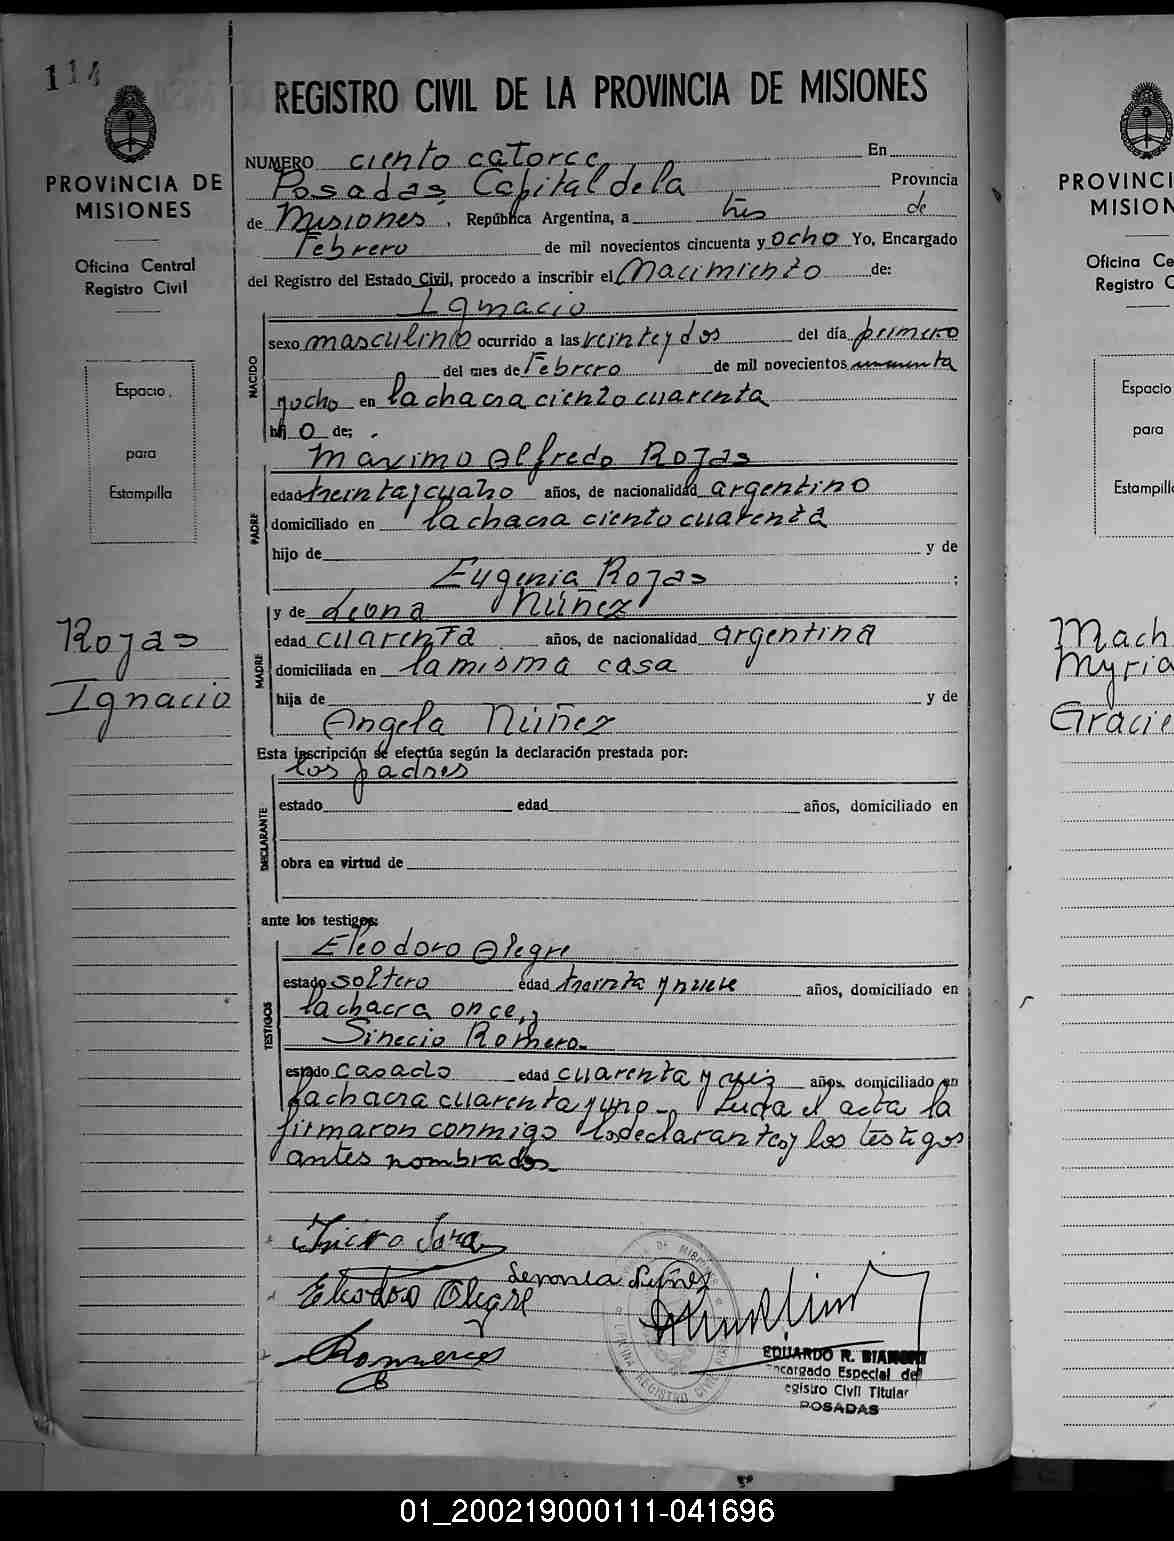 114
PROVINCIA DE
MISIONES
Oficina Central
Registro Civil
Espacio
para
Estampilla
Rojas
Ignacio
REGISTRO CIVIL DE LA PROVINCIA DE MISIONES
NUMERO ciento catorce En
Posadas, Capital de la Provincia
de Misiones, República Argentina, a tres de
Febrero de mil novecientos cincuenta y ocho Yo, Encargado
del Registro del Estado Civil, procedo a inscribir el Nacimiento de:
NACIDO
Ignacio
sexo masculino ocurrido a las veinte y dos del día primero
del mes de Febrero de mil novecientos cincuenta
y ocho en la chacra ciento cuarenta
hij o de:
PADRE
Maximo Alfredo Rojas
edad treinta y cuatro años, de nacionalidad argentino
domiciliado en la chacra ciento cuarenta
hijo de y de
Eugenia Rojas ;
MADRE
y de Leona Núñez
edad cuarenta años, de nacionalidad argentina
domiciliada en la misma casa
hija de y de
Angela Núñez
Esta inscripción se efectúa según la declaración prestada por:
los padres
DECLARANTE
estado edad años, domiciliado en
obra en virtud de
ante los testigos:
TESTIGOS
Eleodoro Alegre
estado soltero edad treinta y nueve años, domiciliado en
la chacra once, y
Sinecio Romero
estado casado edad cuarenta y seis años, domiciliado en
la chacra cuarenta y uno. Leida el acta la
firmaron conmigo los declarantes y los testigos
antes nombrados
Eleodoro Alegre
Núñez
Romero
EDUARDO R. BIANCHI
Encargado Especial del
Registro Civil Titular
POSADAS
PROVINCI
MISION
Oficina Ce
Registro C
Espacio
para
Estampilla
Mach
Myria
Gracie
01_200219000111-041696